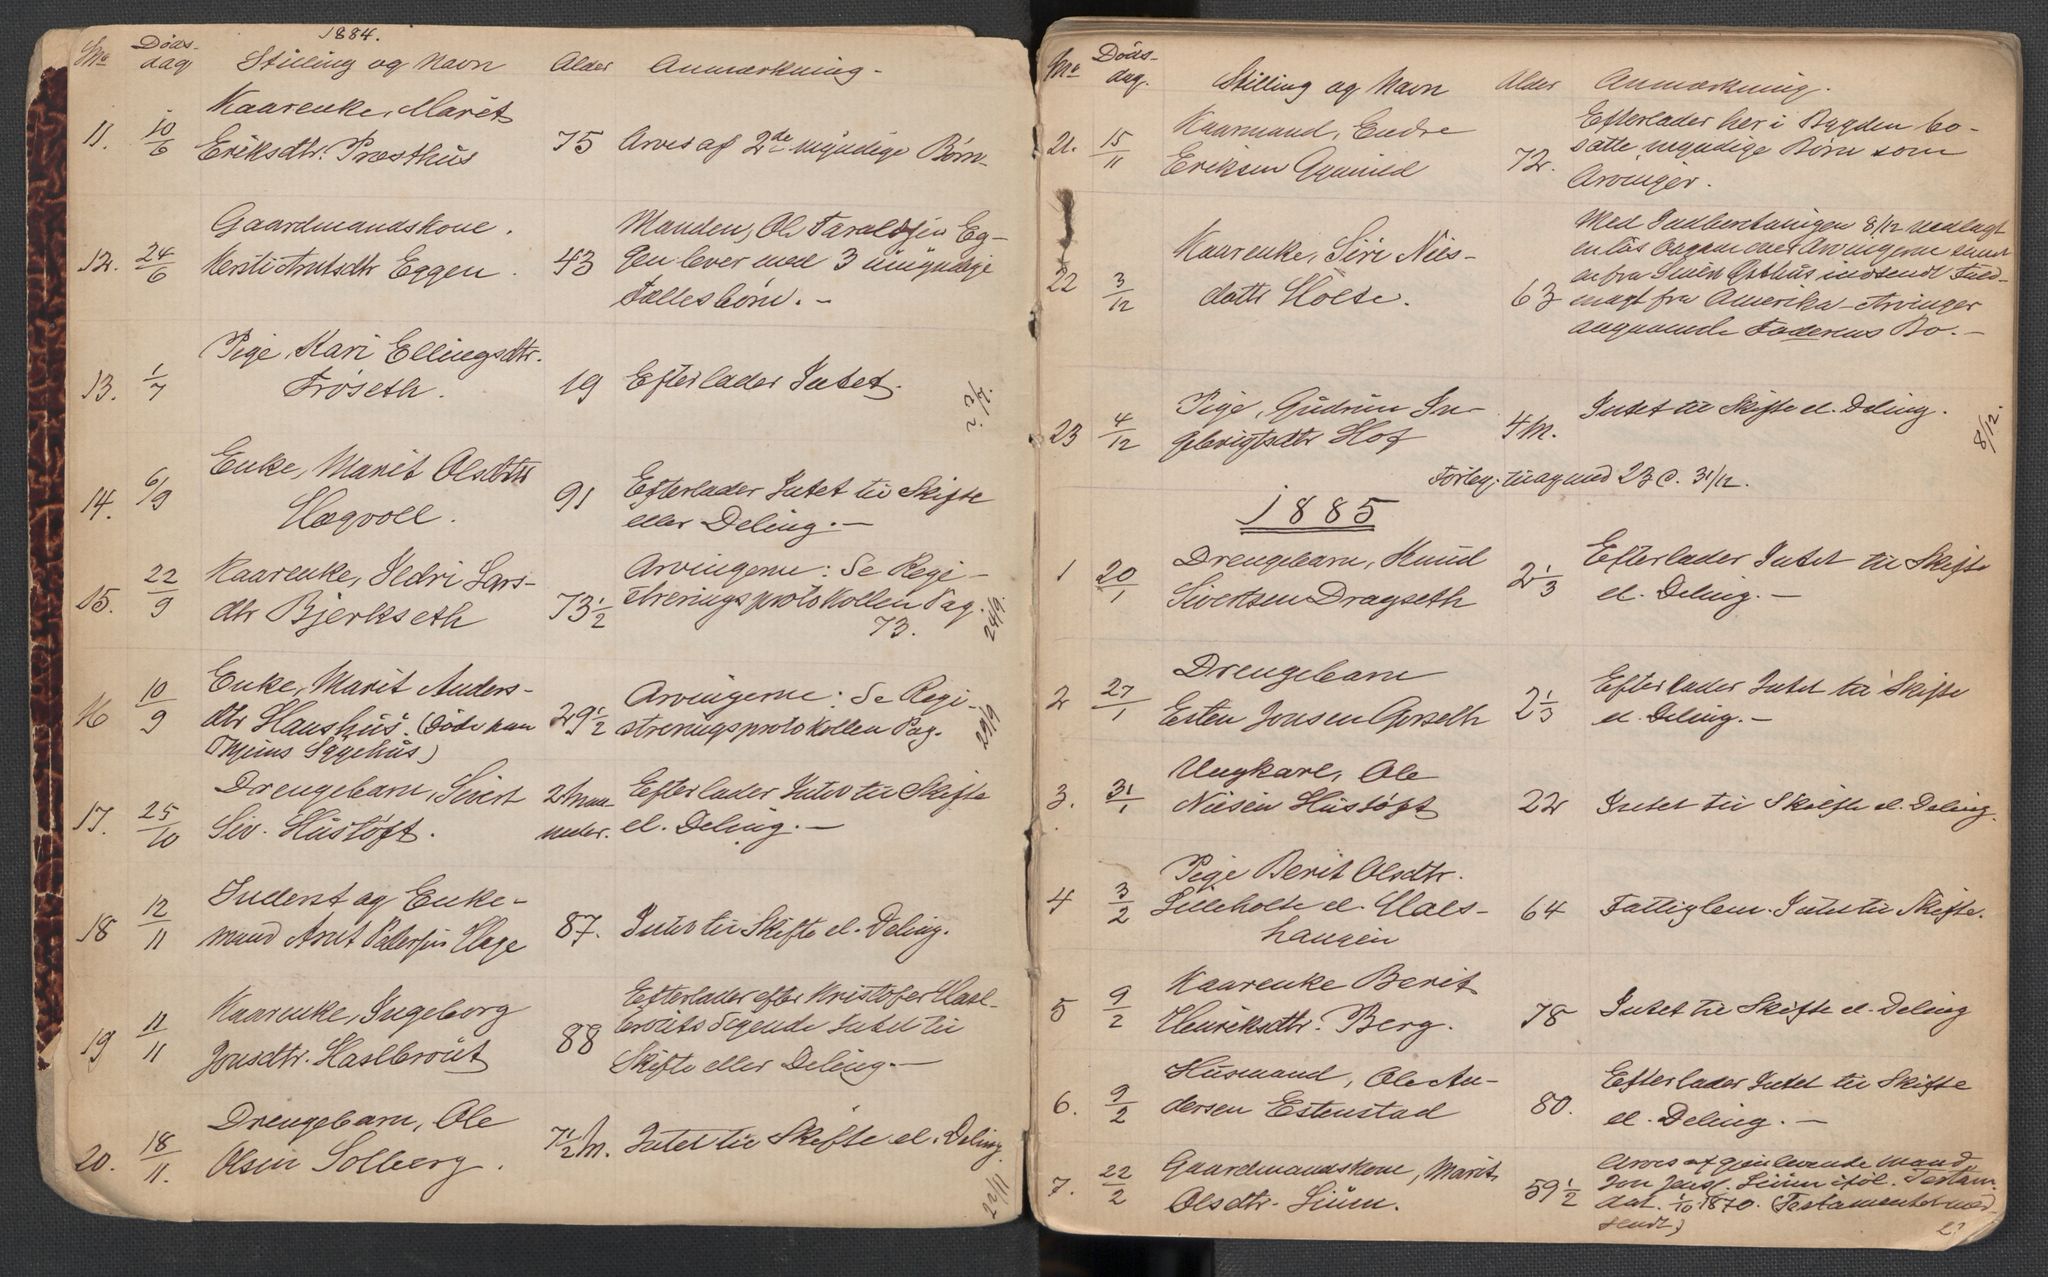 1884.
No Døds-dag Stilling og Navn Alder Anmærkning.
11. 10/6 Kaarenke, Marit
Eriksdtr. Præsthus 75 Arves af 2de myndige Børn
12. 24/6 Gaardmandskone.
Kersti Arntsdtr Eggen. 43
Manden, Ole Taraldsen Eg-
gen lever med 3 umyndige
Fællesbørn. —
13. 1/7 Pige, Kari Ellingsdtr.
Frøseth. 19 Efterlader Intet.
14. 6/9 Enke, Marit Olsdtr
Hægvoll. 91
Efterlader Intet til Skifte
eller Deling. —
15. 22/9 Kaarenke, Sedri Lars-
dtr Bjerkseth 73 1/2
Arvingerne: Se Regi-
streringsprotokollen Pag.
73. 24/9.
16 10/9 Enke, Marit Anders-
dtr Haushus. (Døde paa
Sygehus) 29 1/2
Arvingerne: Se Regi-
streringsprotokollen Pag. 29/9
17. 25/10 Drengebarn, Sivert
Siv. Hustøft. 2 Maa-
neder.
Efterlader Intet til Skifte
el. Deling. —
18 12/11 Inderst og Enke-
mand Arnt Pedersen Hage 87. Intet til Skifte el. Deling.
19 11/11 Kaarenke, Ingeborg
Jonsdtr. Haslbrout 88
Efterlader efter Kristofer Hasl-
brouts Sigende Intet til
Skifte eller Deling. —
20. 18/11. Drengebarn, Ole
Olsen Solberg. 7 1/2 M. Intet til Skifte el. Deling.
No Døds-dag. Stilling og Navn Alder Anmærkning.
21. 15/11 Kaarmand, Endre
Eriksen Gynnild 72.
Efterlader her i Bygden bo-
satte myndige Børn som
Arvinger.
22 3/12 Kaarenke, Siri Nils-
datr Holte. 63
Med Indberetningen 8/12 nedlagt
en løs Opgave over Arvingerne samt
en fra Sivert indsendt Fuld-
magt fra Amerika-Arvinger
angaaende Faderens Bo. —
23 4/12 Pige, Gudrun In-
gebrigtsdtr Hof 4 M. Intet til Skifte el. Deling. 8/12.
til og med 23 d. 31/12.
1885
1 20/1 Drengebarn, Knud
Sivertsen Dragseth 2 1/3
Efterlader Intet til Skifte
el. Deling. —
2 27/1 Drengebarn
Esten Jonsen Gorseth 2 1/3
Efterlader Intet til Skifte
el. Deling. —
3. 31/1 Ungkarl, Ole
Nilsen Hustøft 22 Intet til Skifte el. Deling.
4 3/2 Pige Berit Olsdtr.
Lilleholte el. Hals-
haugen 64 Fattiglem. Intet til Skifte.
5 9/2 Kaarenke Berit
Henriksdtr. Berg. 78 Intet til Skifte el. Deling
6. 9/2 Husmand, Ole An-
dersen Estenstad 80.
Efterlader Intet til Skifte
el. Deling. —
7. 22/2 Gaardmandskone, Marit
Olsdtr. Lium. 59 1/2
Arves af gjenlevende Mand
Jon Jensf. Lium iføl. Testam.
dat. 1/10 1870. (Testamentet med-
sendt)